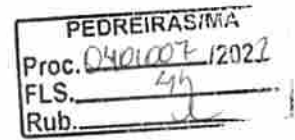 PEDREIRAS/MA
Proc. 0401007 /2022
FLS. 44
Rub.